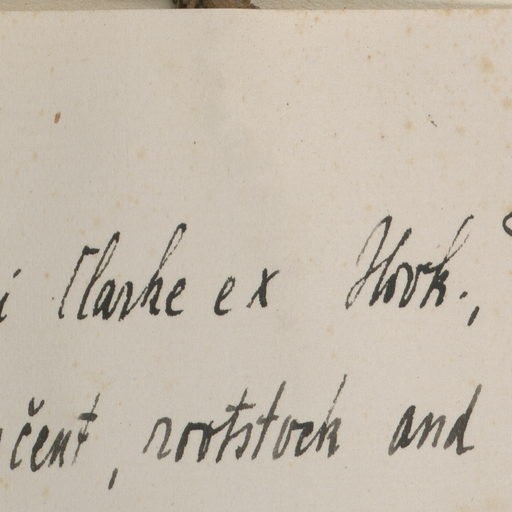 i Clarke ex Hook.,
čent, rootstock and